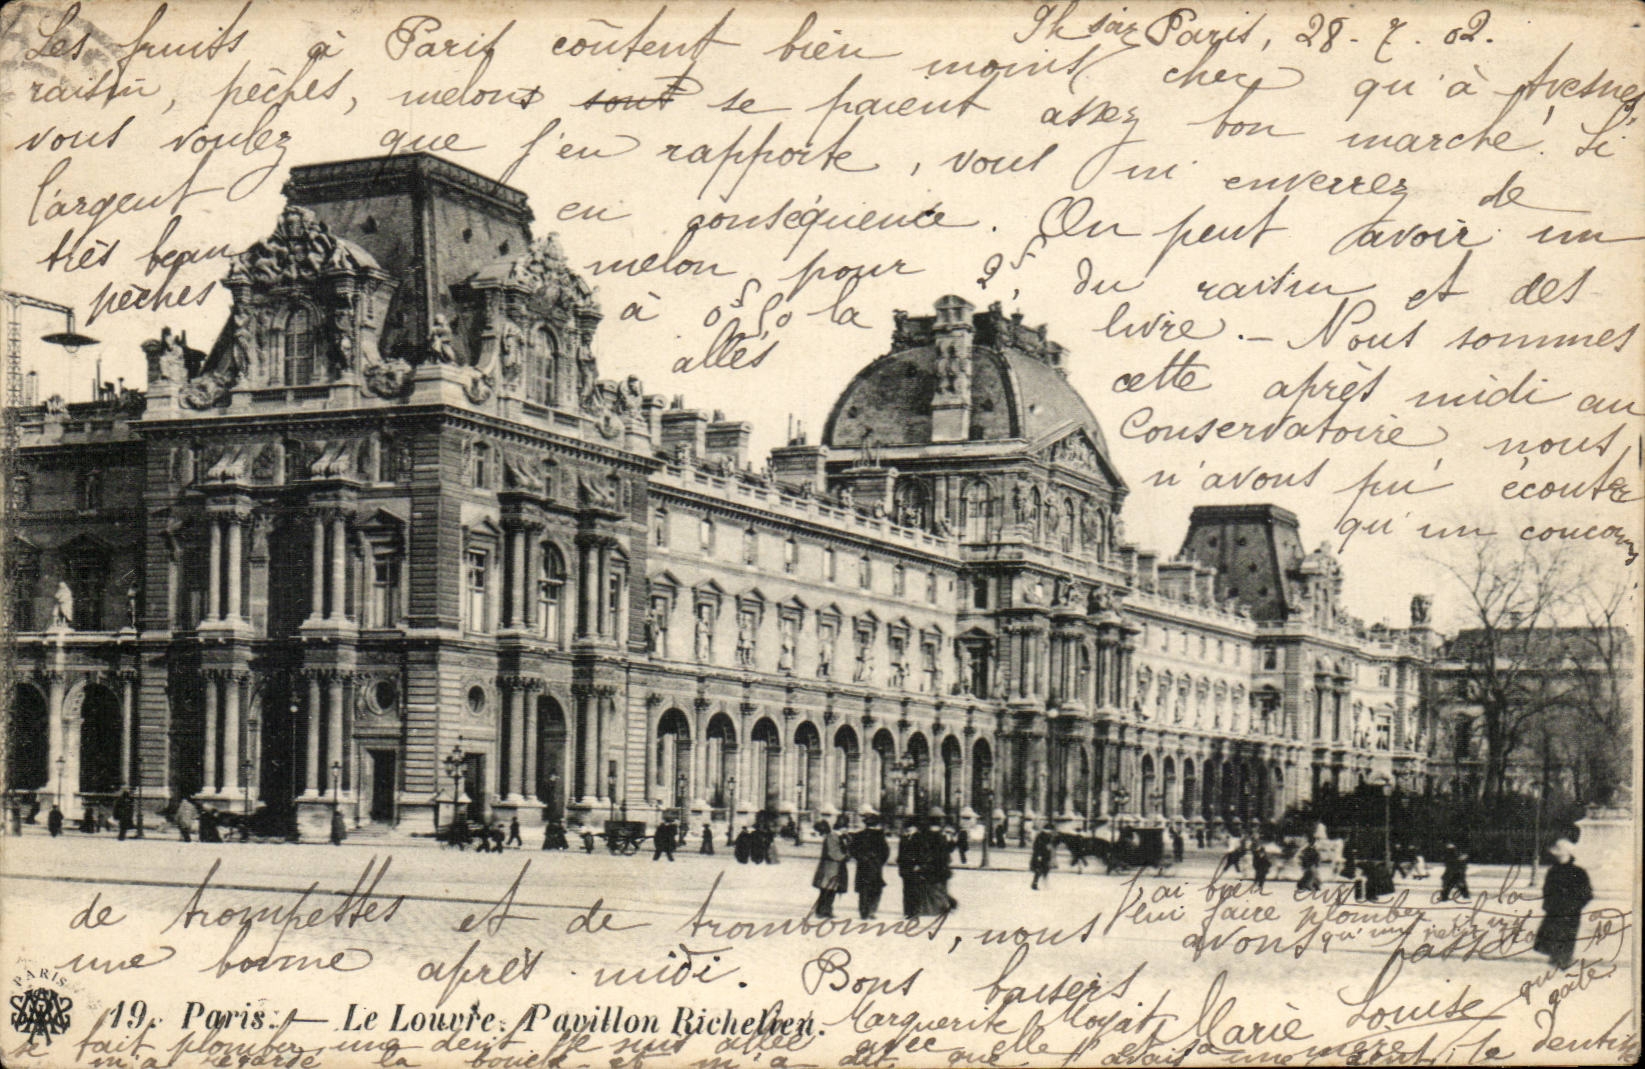 9h soir Paris, 28. 7. 02.
Les fruits à Paris coûtent bien moins cher qu'à Avesnes,
raisin, pêches, melons sont se paient assez bon marché. Si
vous voulez que j'en rapporte, vous m'enverrez de
l'argent en conséquence. On peut avoir un
très beau melon pour 2f, du raisin et des
pêches à 0f,80 la livre. - Nous sommes
allés cette après midi au
Conservatoire, nous
n'avons pu écouter
qu'un concours
de trompettes et de trombonnes, nous avons passé
une bonne après midi. Bons baisers.
Marie Louise
19. Paris. — Le Louvre. Pavillon Richelieu.
PARIS
Marguerite Moyat
se fait plomber une dent. Je suis allée avec elle et sa mère, le dentiste
m'a regardé la bouche et m'a dit que j'avais une dent
qui se
gâte.
J'ai bien envie de la
lui faire plomber